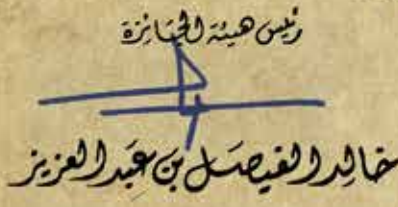 رئيس هيئة الجائزة
خالد الفيصل بن عبد العزيز